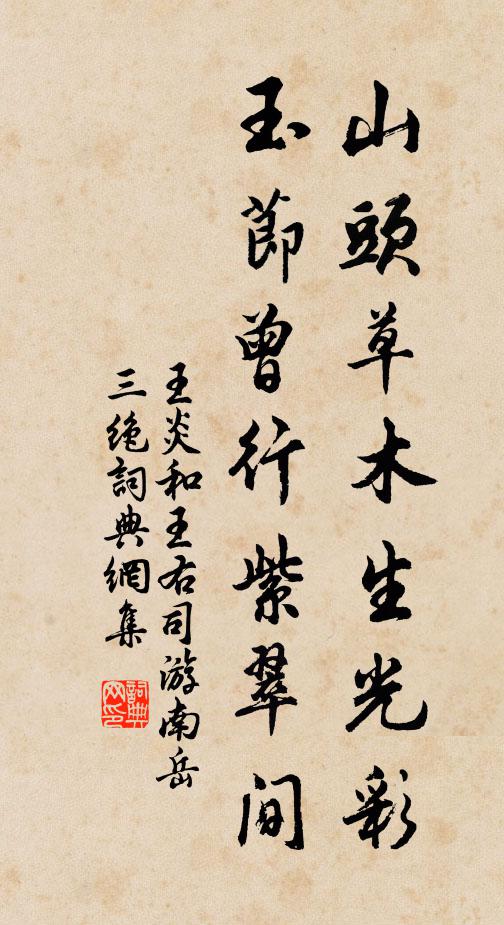 山頭草木生光彩
玉節曾行紫翠間
王炎和王右司游南岳
三絕詞典網集
詞典
网印